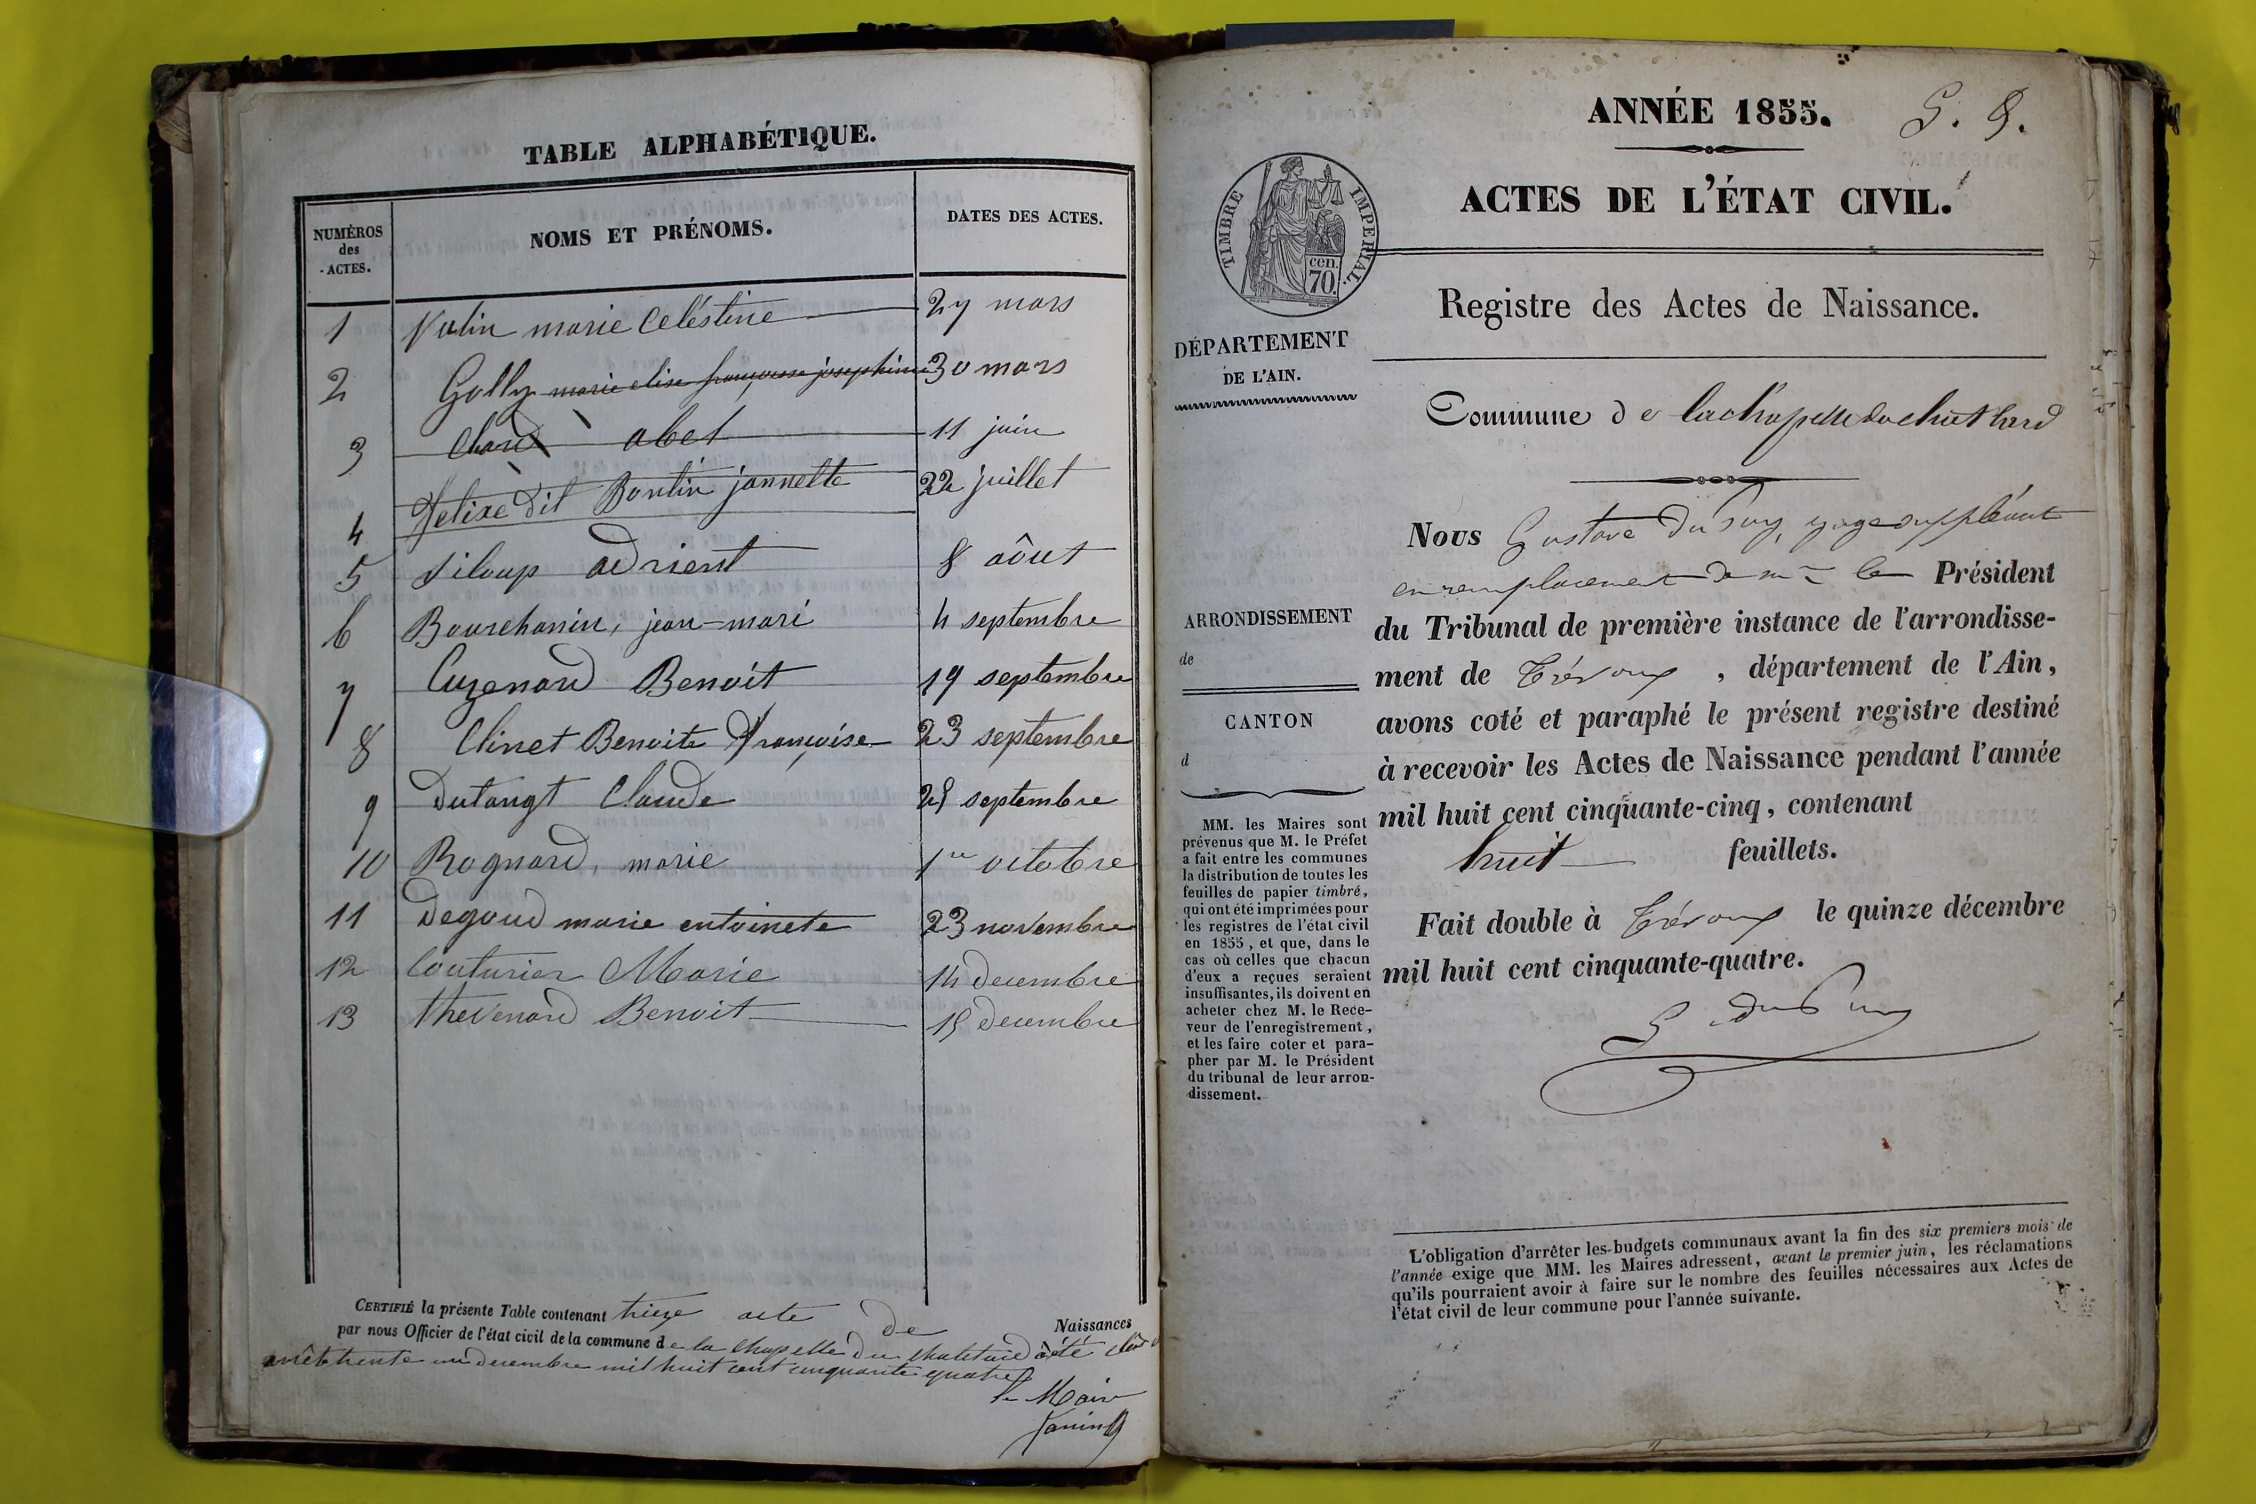 TABLE ALPHABÉTIQUE.
NUMÉROS
des
ACTES.
NOMS ET PRÉNOMS.
DATES DES ACTES.
1 marie Celéstine 27 mars
2 Golly marie elise françoise josephine 30 mars
3 abel 11 juin
4 dit jannette 22 juillet
5 Siloup adrient 8 aôut
6 Bourchanin, jean-mari 4 septembre
7 Cuzenard Benoit 19 septembre
8 Clinet Benoite françoise 23 septembre
9 Dutangt Claude septembre
10 Rognard, marie 1re octobre
11 Degoud marie entoinete 23 novembre
12 Couturier Marie 14 decembre
13 thevenard Benoit 15 decembre
CERTIFIÉ la présente Table contenant trieze acte de Naissances
par nous Officier de l'état civil de la commune de la Chapelle du été
trente un decembre mil huit cent cinquante quatre
le Maire
Janin
ANNÉE 1855.
ACTES DE L'ÉTAT CIVIL.
TIMBRE IMPERIAL.
cen.
70.
Registre des Actes de Naissance.
DÉPARTEMENT
DE L'AIN.
Commune de lachapelle du chatelard
Nous Gustave Dupuy, juge suppléant
en remplacement de mr le Président
du Tribunal de première instance de l'arrondisse-
ment de Trévoux, département de l'Ain,
avons coté et paraphé le présent registre destiné
à recevoir les Actes de Naissance pendant l'année
mil huit cent cinquante-cinq, contenant
huit feuillets.
Fait double à Trévoux le quinze décembre
mil huit cent cinquante-quatre.
G. Dupuy
ARRONDISSEMENT
de
CANTON
d
MM. les Maires sont
prévenus que M. le Préfet
a fait entre les communes
la distribution de toutes les
feuilles de papier timbré,
qui ont été imprimées pour
les registres de l'état civil
en 1855, et que, dans le
cas où celles que chacun
d'eux a reçues seraient
insuffisantes, ils doivent en
acheter chez M. le Rece-
veur de l'enregistrement,
et les faire coter et para-
pher par M. le Président
du tribunal de leur arron-
dissement.
L'obligation d'arrêter les budgets communaux avant la fin des six premiers mois de
l'année exige que MM. les Maires adressent, avant le premier juin, les réclamations
qu'ils pourraient avoir à faire sur le nombre des feuilles nécessaires aux Actes de
l'état civil de leur commune pour l'année suivante.